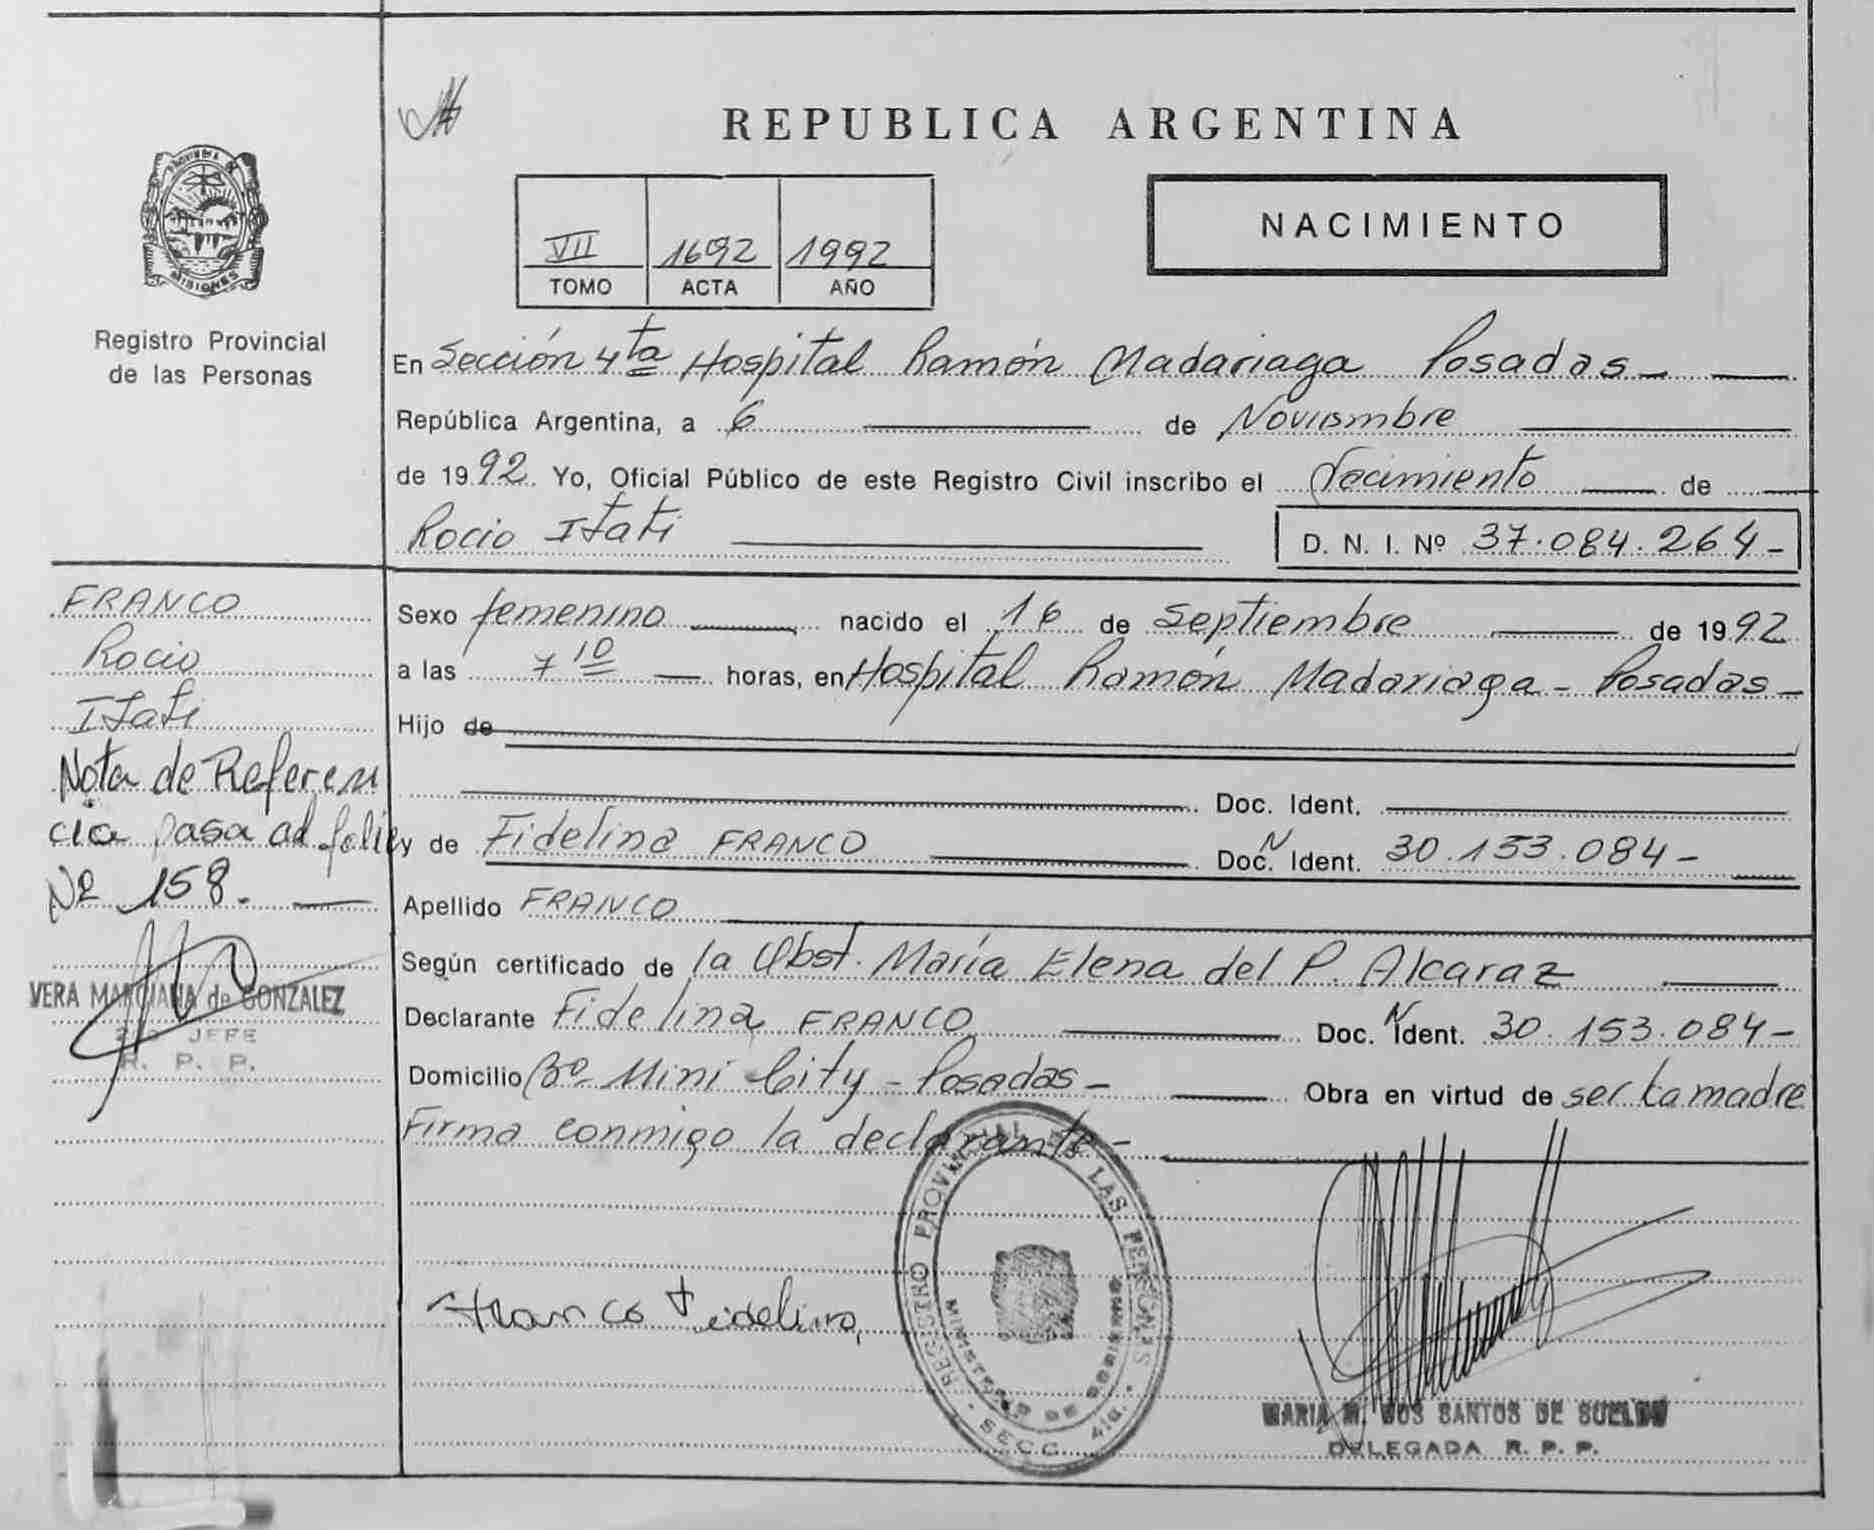 REPUBLICA ARGENTINA
PROVINCIA DE
MISIONES
Registro Provincial
de las Personas
VII 1692 1992
TOMO ACTA AÑO
NACIMIENTO
En Sección 4ta Hospital Ramón Madariaga Posadas
República Argentina, a 6 de Noviembre
de 1992. Yo, Oficial Público de este Registro Civil inscribo el Nacimiento de
Rocio Itati
D. N. I. Nº 37.084.264-
FRANCO
Rocio
Itati
Nota de Referen
cia pasa al folio
Nº 158.
VERA MARCIANA de GONZALEZ
JEFE
R. P. P.
Sexo femenino nacido el 16 de Septiembre de 1992
a las 7 10 horas, en Hospital Ramón Madariaga - Posadas-
Hijo de
Doc. Ident.
y de Fidelina FRANCO Doc. N Ident. 30.153.084-
Apellido FRANCO
Según certificado de la Obst. María Elena del P. Alcaraz
Declarante Fidelina FRANCO Doc. N Ident. 30.153.084-
Domicilio Bº Mini City - Posadas- Obra en virtud de ser la madre
Firma conmigo la declarante-
Franco Fidelina
REGISTRO PROVINCIAL DE LAS PERSONAS
MINISTERIO DE GOBIERNO
SECC. 4ta.
MARIA M. DOS SANTOS DE SUELDO
DELEGADA R. P. P.